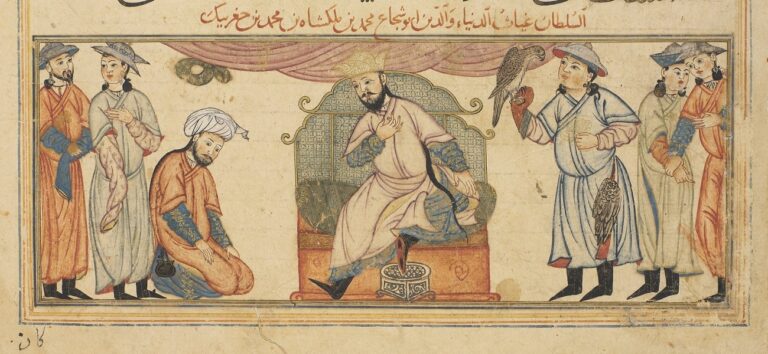 السلطان غیاث الدنیاء والدین ابو شجاع محمد بن ملکشاه بن محمد بن جغربیک
کان